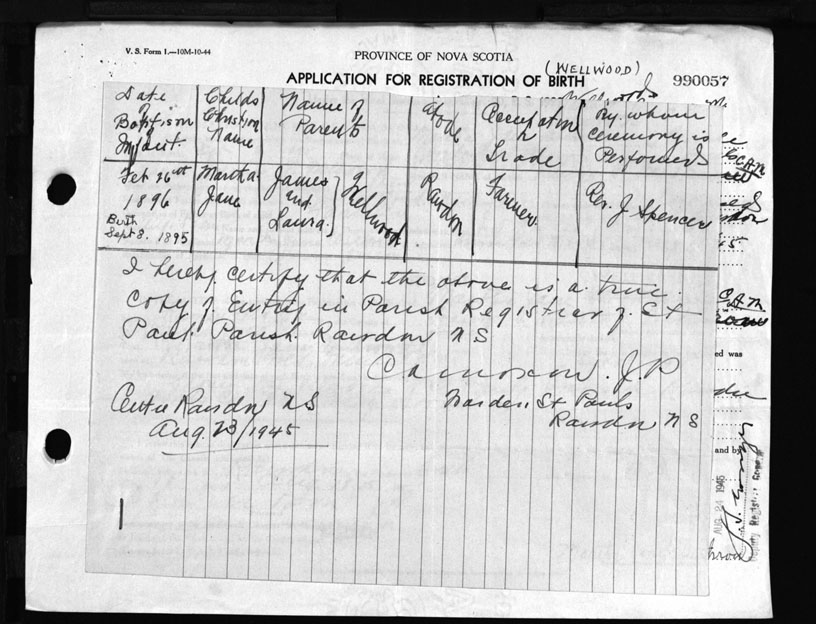 V. S. Form 1.—10M-10-44
PROVINCE OF NOVA SCOTIA
(WELLWOOD)
APPLICATION FOR REGISTRATION OF BIRTH
990057
Date of Baptism of Infant.
Childs Christian Name
Name of Parents
Abode
Occupation or Trade
By whom ceremony is Performed
Feb 26th 1896
Birth Sept 8. 1895
Martha Jane
James and Laura.
Wellwood
Rawdon
Farmer
Rev. J Spencer
I hereby certify that the above is a true
Copy of Entry in Parish Register of St
Paul Parish Rawdon N S
J.P
Warden St Pauls
Rawdon N S
Centre Rawdon N S
Aug. 23/1945
ed was
and by
AUG 24 1945